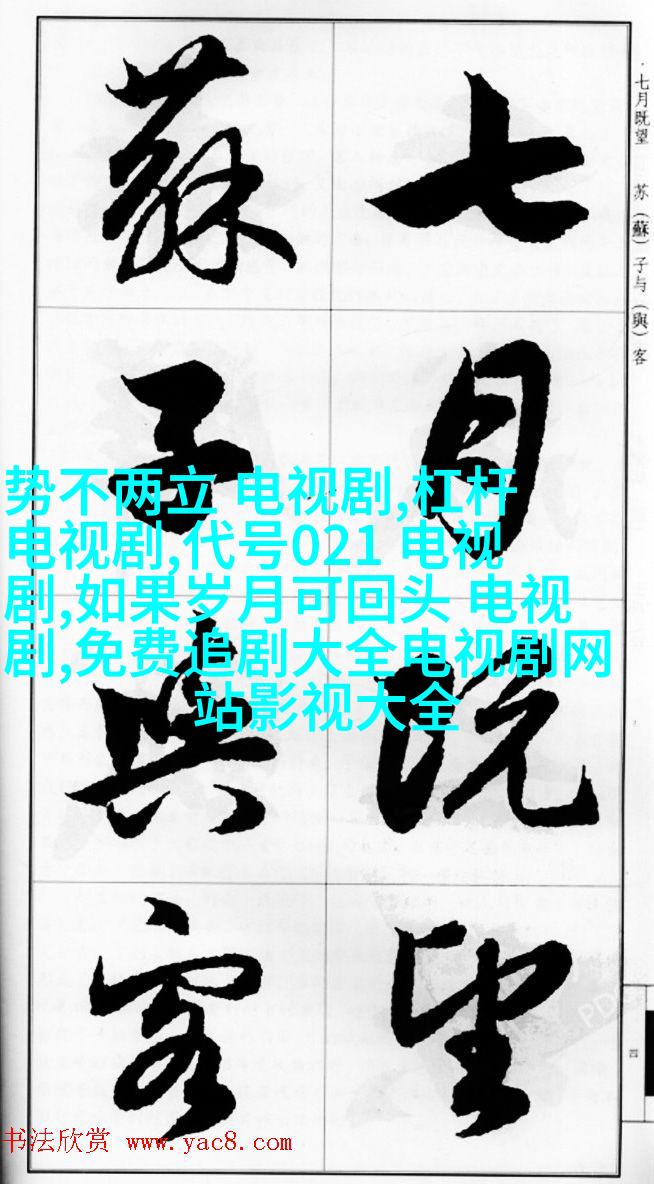 七月既望
蘇子與客
·七月既望 苏（蘇）子与（與）客
势不两立 电视剧,杠杆
电视剧,代号021 电视
剧,如果岁月可回头 电视
剧,免费追剧大全电视剧网
站影视大全
四
PD
书法欣赏 www.yac8.com